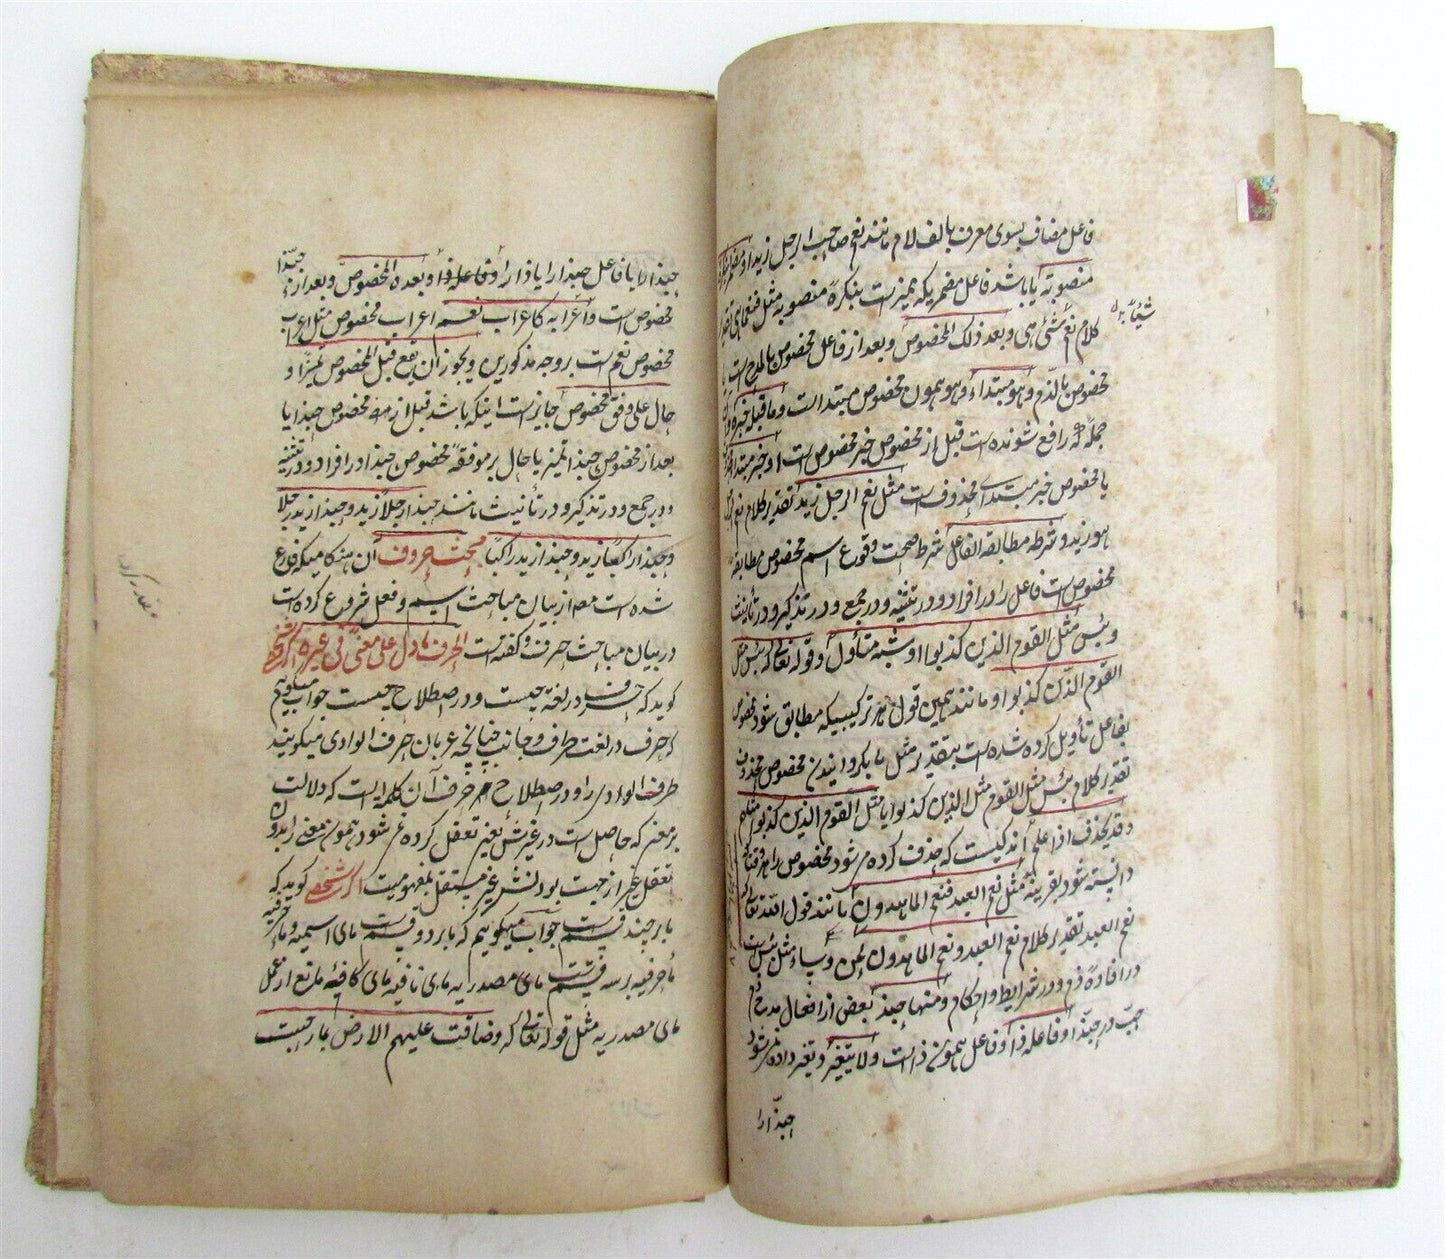 فاعل مضاف بسوی معرف بالف لام مانند نعم صاحب الرجل زید او مضمر
منصوبة یا باشد فاعل مضمریکه ممیز است بنکرهٔ منصوبه مثل فنعما هی
شیئا
کلام نعم شئ هی و بعد ذلک المخصوص و بعد از فاعل مخصوص بالمدح است یا
مخصوص بالذم و هو مبتداء و هو همون مخصوص مبتدا است و ما قبله خبره
جملهٔ که رافع شونده است قبل از مخصوص خبر مخصوص است او خبر مبتداء
یا مخصوص خبر مبتدای محذوف است مثل نعم الرجل زید تقدیر کلام نعم
هو زید و شرطه مطابقة الفاعل شرط صحت وقوع اسم مخصوص مطابقهٔ
مخصوص است فاعل را در افراد و در تثنیه و در جمع و در تذکیر و در تأنیث
و بئس مثل القوم الذین کذبوا و شبهه متأول و قوله تعالی که بئس مثل
القوم الذین کذبوا و مانند همین قول هر ترکیبیکه مطابق نشود مخصوص
بفاعل تأویل کرده شده است بتقدیر مثل یا بگردانیدن مخصوص محذوف
تقدیر کلام بئس مثل القوم مثل الذین کذبوا یا مثل القوم الذین کذبوا مثلهم
و قد یحذف اذا علم اندکیست که حذف کرده می شود مخصوص را هر وقتیکه
دانسته شود بقرینه مثل نعم العبد فنعم الماهدون مانند قول الله تعالی
نعم العبد تقدیر کلام نعم العبد و نعم الماهدون نحن و ساء مثل بئس است
در افادهٔ ذم و در شرایط و احکام و منها حبذا بعضی از افعال مدح و ذم
حب در حبذا و فاعله ذا و فاعل همون ذا است و لا یتغیر و تغیر داده نمی شود
حبذا را
حبذا را یا فاعل حبذا را یا ذا را و فاعله ذا و بعده المخصوص و بعد از حبذا
مخصوص است و اعرابه کاعراب نعم اعراب مخصوص مثل اعراب
مخصوص نعم است بر وجه مذکورین و یجوز ان یقع قبل المخصوص تمییزا و
حال علی وفق مخصوص جایز است اینکه باشد قبل از مخصوص حبذا یا
بعد از مخصوص حبذا تمیز یا حال بر موافقهٔ مخصوص حبذا در افراد و در تثنیه
و در جمع و در تذکیر و در تأنیث مانند حبذا رجلا زید و حبذا زید رجلا
و حبذا راکبا زید و حبذا زید راکبا مبحث حروف آن هنگامیکه فارغ
شده است مصـ از بیان مباحث اسم و فعل شروع کرده است
در بیان مباحث حرف و گفته است الحرف ما دل علی معنی فی غیره اگر شخصی
گوید که حرف در لغة چیست و در اصطلاح چیست جواب میگوییم
که حرف در لغت طرف و جانب چنانچه عربان حرف الوادی میگویند
طرف الوادی را و در اصطلاح حرف آن کلمه ایست که دلالت
بر معنی که حاصل است در غیرش یعنی تعقل کرده می شود همون معنی را بدون
تعقل غیر از جهت بودنش غیر مستقل بمفهومیت اگر شخصی گوید که
ما بر چند قسم است جواب میگوییم که ما بر دو قسم است مای اسمیه و ما حرفیه
ما حرفیه بر سه قسم است مای مصدریه مای نافیه مای کافیه مانع از عمل
مای مصدریه مثل قوله تعالی که و ضاقت علیهم الارض بما رحبت